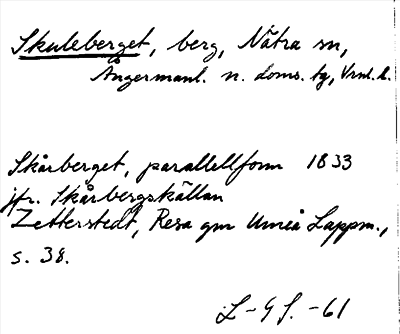 Skuleberget, berg, Nätra sn,
Ångermanl. n. doms. tg, Vrnl. l.
Skårberget, parallellform 1833
jfr. Skårbergskällan
Zetterstedt, Resa gm Umeå Lappm.,
s. 38.
L-G J. -61